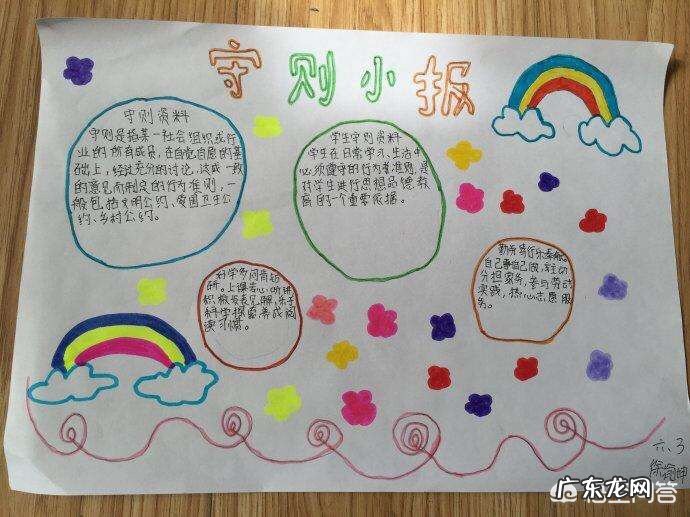 守则小报
守则资料
守则是指某一社会组织或行
业的所有成员，在自觉自愿的基
础上，经过充分的讨论，达成一致
的意见而制定的行为准则，一
般包括文明公约、爱国卫生公
约、乡村公约。
学生守则资料
学生在日常学习、生活中
必须遵守的行为者准则，是
对学生进行思想品德教
育的一个重要依据。
好学多问肯钻
研。上课专心听讲
积极发表见解，乐于
科学探索，养成阅
读习惯。
勤劳笃行乐奉献
自己事自己做，主动
分担家务，参与劳动
实践，热心志愿服
务。
六、3
广东龙网